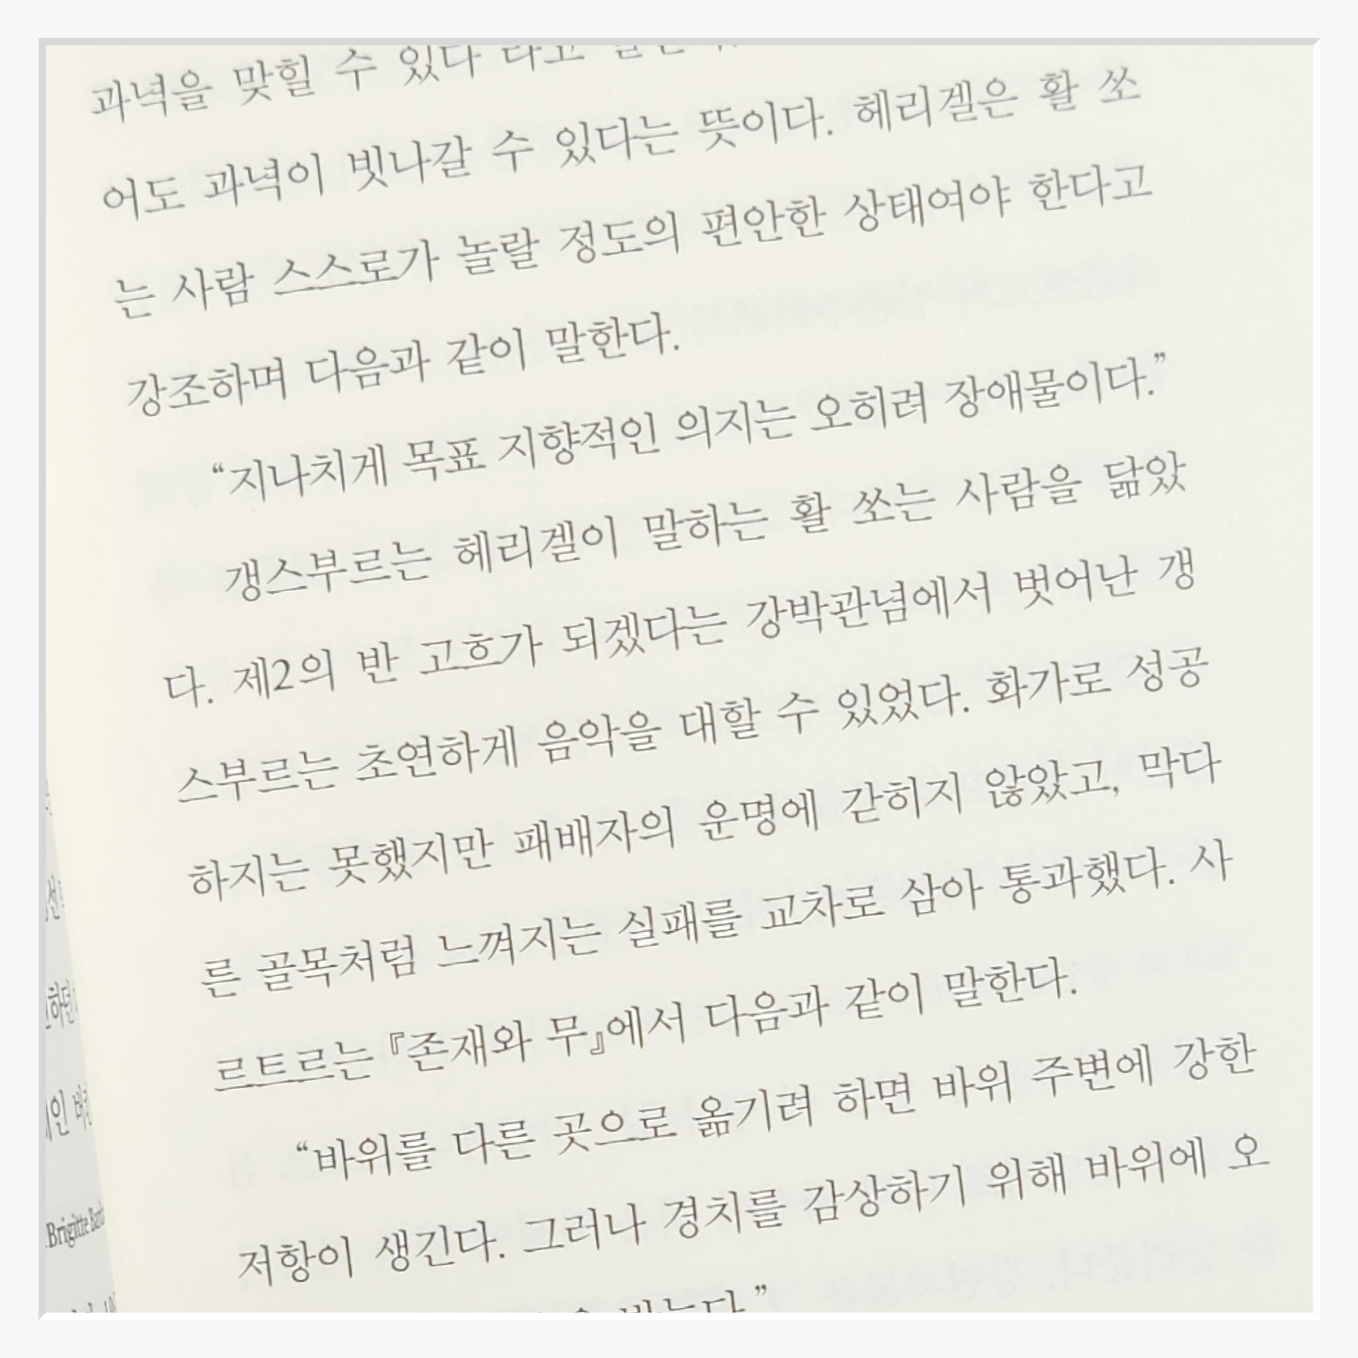 과녁을 맞힐 수 있다 라고
어도 과녁이 빗나갈 수 있다는 뜻이다. 헤리겔은 활 쏘
는 사람 스스로가 놀랄 정도의 편안한 상태여야 한다고
강조하며 다음과 같이 말한다.
“지나치게 목표 지향적인 의지는 오히려 장애물이다.”
갱스부르는 헤리겔이 말하는 활 쏘는 사람을 닮았
다. 제2의 반 고흐가 되겠다는 강박관념에서 벗어난 갱
스부르는 초연하게 음악을 대할 수 있었다. 화가로 성공
하지는 못했지만 패배자의 운명에 갇히지 않았고, 막다
른 골목처럼 느껴지는 실패를 교차로 삼아 통과했다. 사
르트르는 『존재와 무』에서 다음과 같이 말한다.
“바위를 다른 곳으로 옮기려 하면 바위 주변에 강한
저항이 생긴다. 그러나 경치를 감상하기 위해 바위에 오
Brigitte